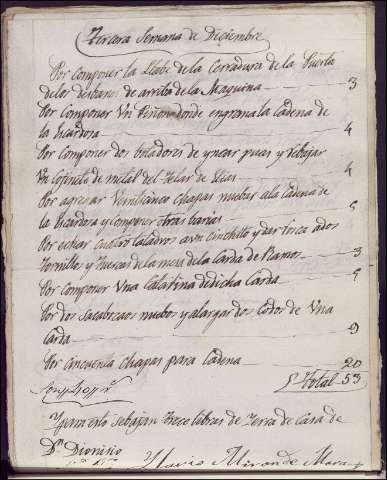 Tercera Semana de Diciembre
Por componer la Llabe de la Cerradura de la Puerta
de los desbanes de arriba de la Maquina 3
Por Componer Vn Piñon donde engrana la Cadena de
la Picardosa 4
Por Componer dos botadores de yncar puas y rebajar
Vn Cofinete de metal del Telar de 4
Por agregar Veinticinco chapas nuebas ala Cadena de
la Picardosa y componer otras barias 5
Por echar cuatro taladros a vn Cinchito y dar rosca ados
Tornillos y tuercas de la mesa de la Carda de Ramos 3
Por Componer Vna Calatina de dicha Carda 5
Por dos Sacabocaos nuebos y alargar dos Codos de Vna
Carda 9
Por Cincuenta chapas para Cadena 20
Total 53
Ygualmente se bajan trece libras de Yerro de Casa de
Dn. Dionisio